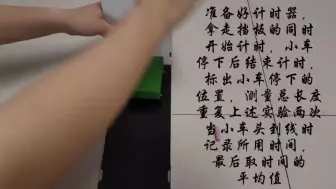 准备好计时器，
拿走挡板的同时
开始计时，小车
停下后结束计时，
标出小车停下的
位置，测量总长度
重复上述实验两次
当小车头到线时
记录所用时间，
最后取时间的
平均值